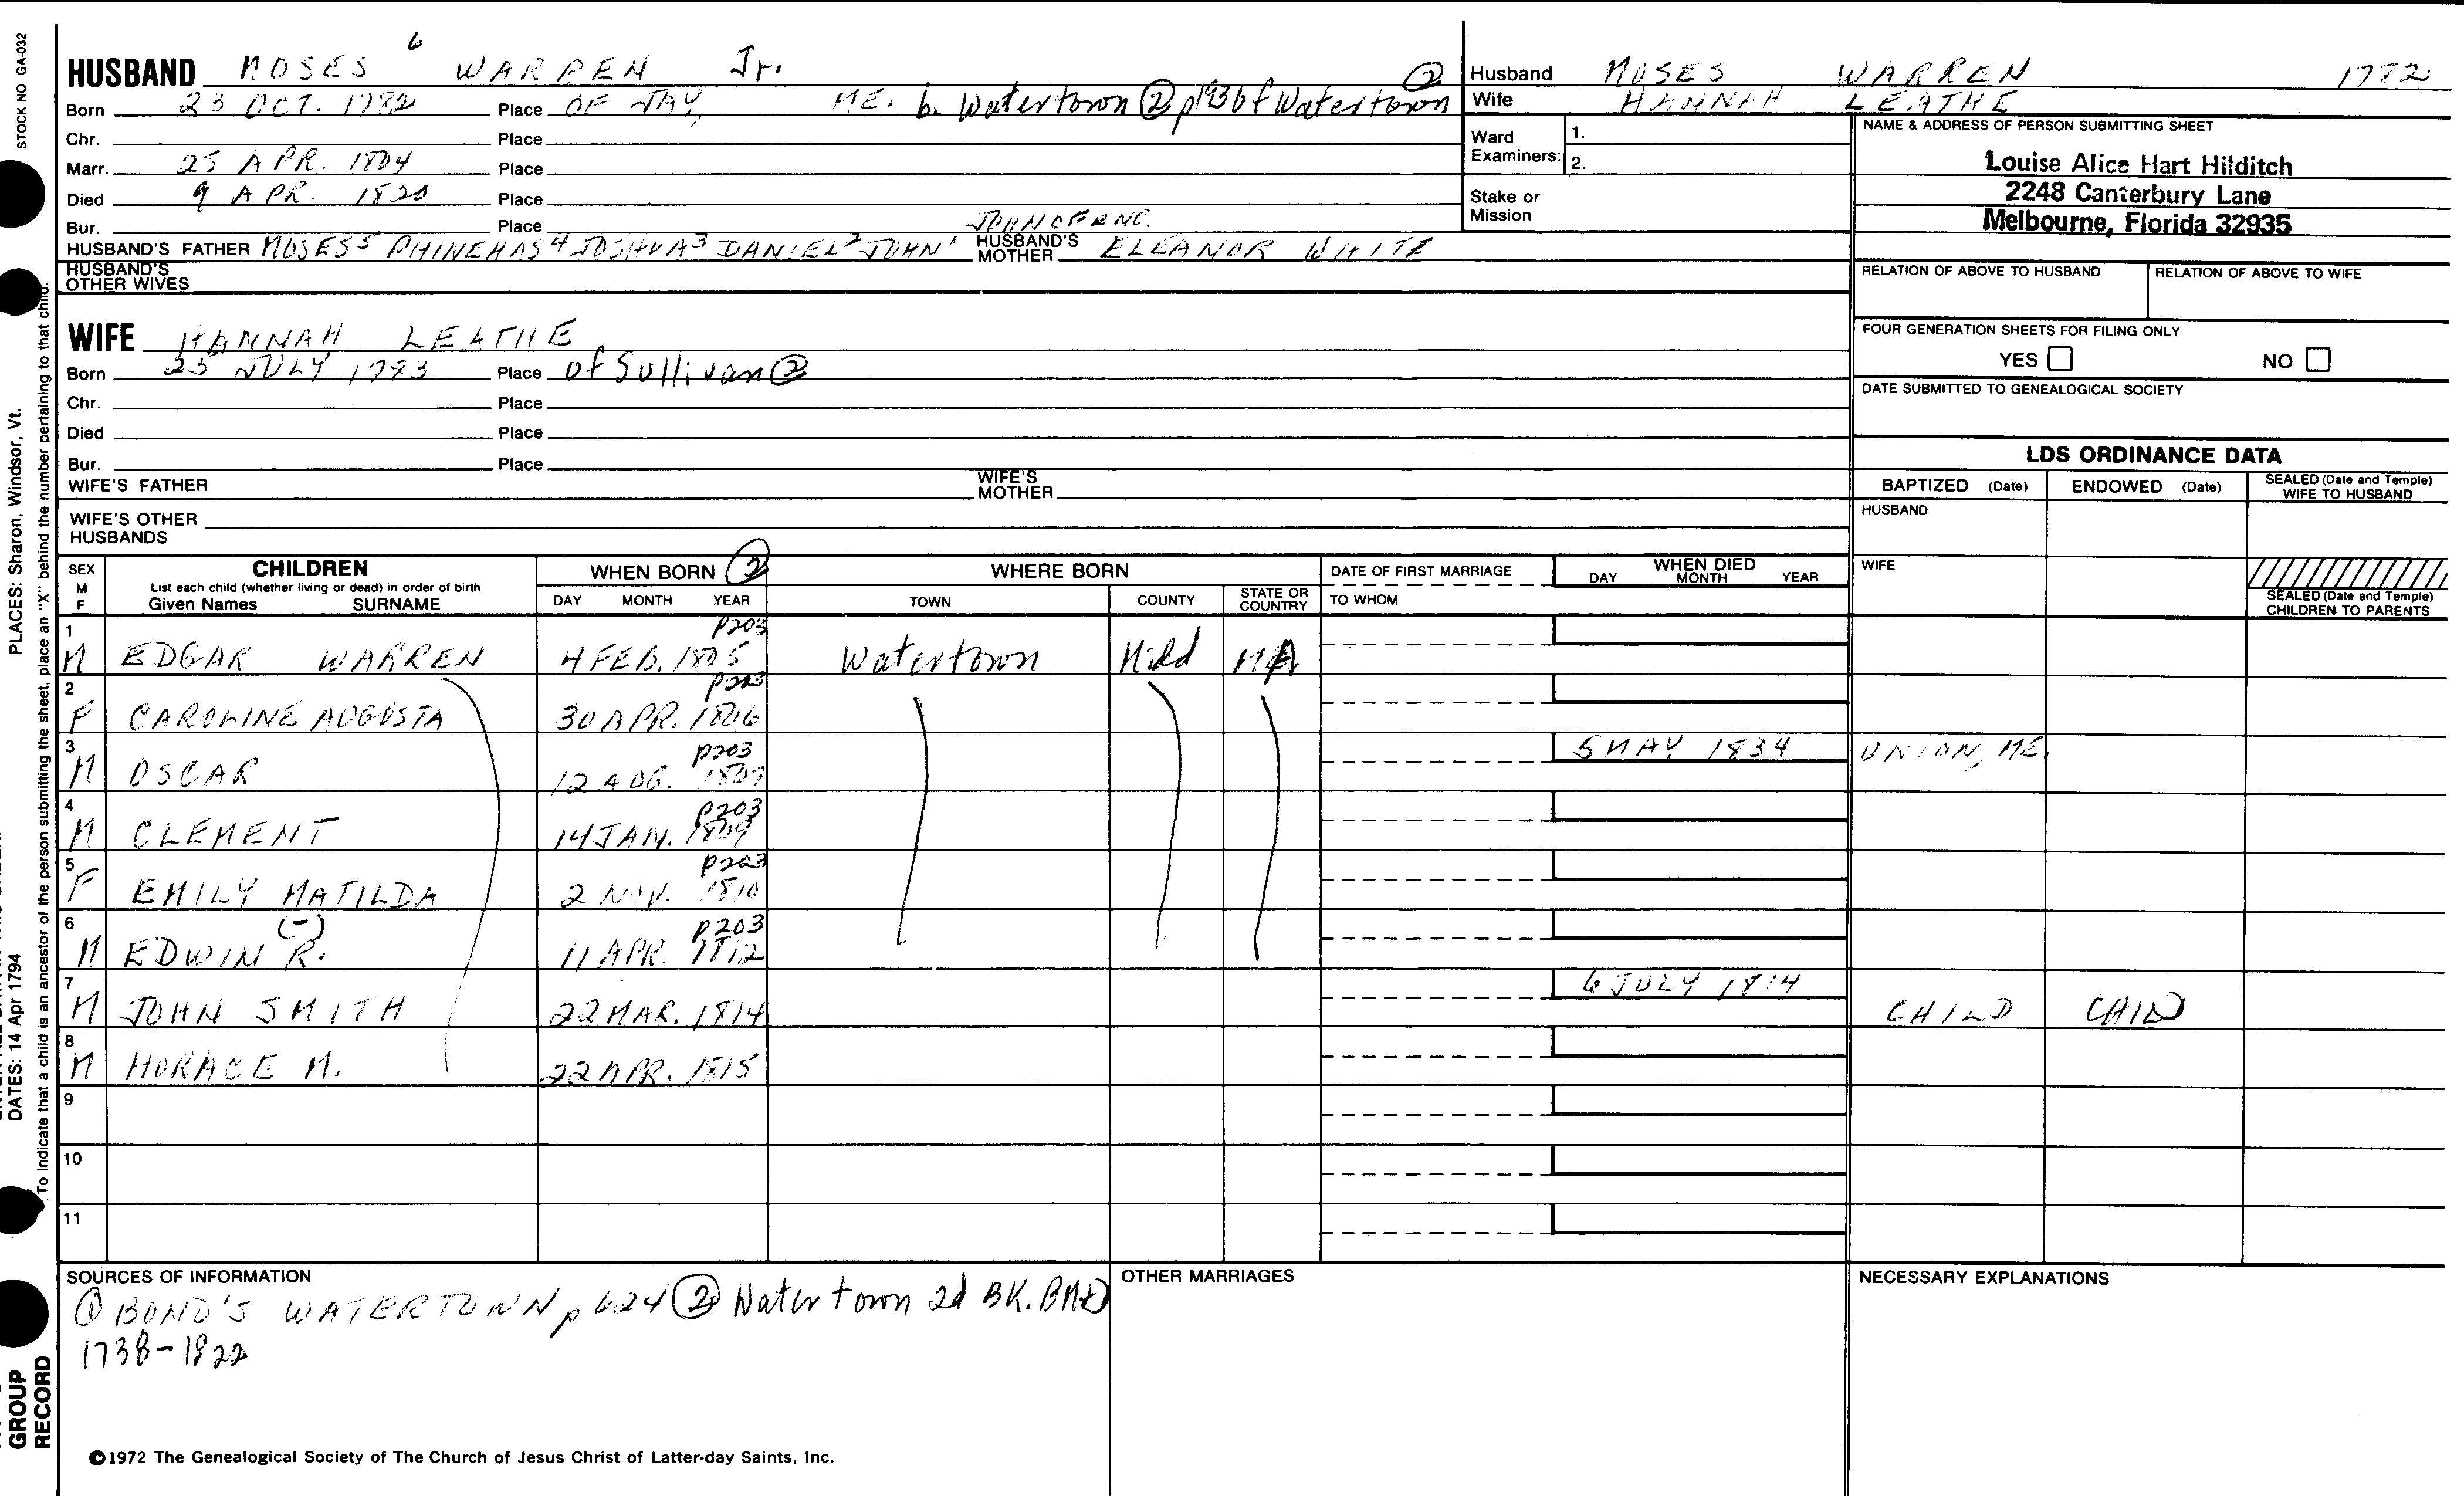 STOCK NO. GA-032
HUSBAND MOSES 6 WARREN Jr.
Born 23 OCT. 1782 Place OF JAY, ME. b. Watertown ② p193 bf Watertown ②
Chr. Place
Marr. 25 APR. 1804 Place
Died 9 APR. 1820 Place
Bur. Place
HUSBAND'S FATHER MOSES5 PHINEHAS4 JOSHUA3 DANIEL2 JOHN1 JOHN OF ENG. HUSBAND'S MOTHER ELEANOR WHITE
HUSBAND'S OTHER WIVES
WIFE HANNAH LEATHE
Born 25 JULY 1783 Place of Sullivan ②
Chr. Place
Died Place
Bur. Place
WIFE'S FATHER WIFE'S MOTHER
WIFE'S OTHER HUSBANDS
Husband MOSES WARREN 1782
Wife HANNAH LEATHE
Ward Examiners: 1.
2.
Stake or Mission
NAME & ADDRESS OF PERSON SUBMITTING SHEET
Louise Alice Hart Hilditch
2248 Canterbury Lane
Melbourne, Florida 32935
RELATION OF ABOVE TO HUSBAND RELATION OF ABOVE TO WIFE
FOUR GENERATION SHEETS FOR FILING ONLY
YES NO
DATE SUBMITTED TO GENEALOGICAL SOCIETY
LDS ORDINANCE DATA
BAPTIZED (Date) ENDOWED (Date) SEALED (Date and Temple) WIFE TO HUSBAND
HUSBAND
WIFE
SEALED (Date and Temple) CHILDREN TO PARENTS
SEX M F
CHILDREN
List each child (whether living or dead) in order of birth
Given Names SURNAME
WHEN BORN ②
DAY MONTH YEAR
WHERE BORN
TOWN COUNTY STATE OR COUNTRY
DATE OF FIRST MARRIAGE
TO WHOM
WHEN DIED
DAY MONTH YEAR
1 M EDGAR WARREN 4 FEB. 1805 p203 Watertown Midd MA
2 F CAROLINE AUGUSTA 30 APR. 1806 p203
3 M OSCAR 12 AUG. 1807 p203 5 MAY 1834 UNION, ME.
4 M CLEMENT 14 JAN. 1809 p203
5 F EMILY MATILDA 2 NOV. 1810 p203
6 M EDWIN R. (-) 11 APR. 1812 p203
7 M JOHN SMITH 22 MAR. 1814 6 JULY 1814 CHILD CHILD
8 M HORACE M. 22 APR. 1815
9
10
11
SOURCES OF INFORMATION
① BOND'S WATERTOWN p 624 ② Watertown 2d BK. BMD
1738-1822
OTHER MARRIAGES
NECESSARY EXPLANATIONS
©1972 The Genealogical Society of The Church of Jesus Christ of Latter-day Saints, Inc.
PLACES: Sharon, Windsor, Vt.
DATES: 14 Apr 1794
To indicate that a child is an ancestor of the person submitting the sheet, place an "X" behind the number pertaining to that child.
GROUP
RECORD